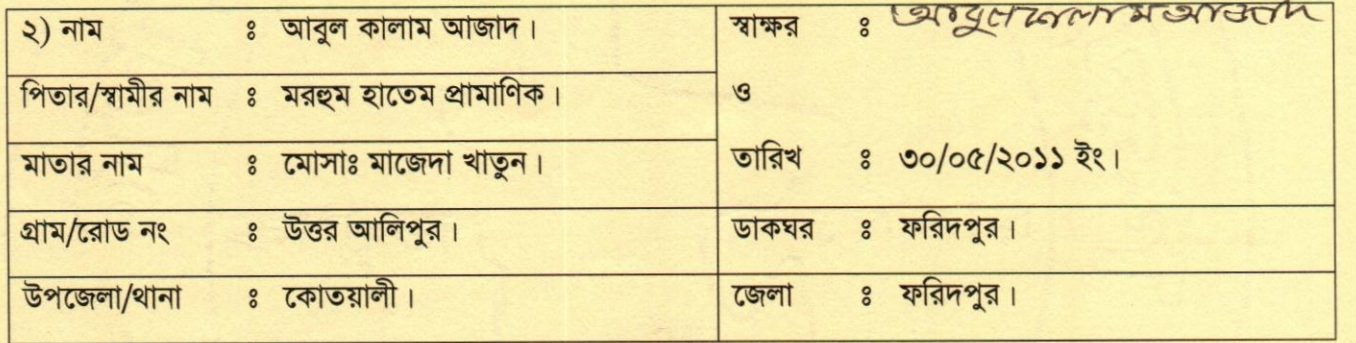 ২) নাম ঃ আবুল কালাম আজাদ। স্বাক্ষর ঃ আবুল কালাম আজাদ
পিতার/স্বামীর নাম ঃ মরহুম হাতেম প্রামাণিক। ও
মাতার নাম ঃ মোসাঃ মাজেদা খাতুন। তারিখ ঃ ৩০/০৫/২০১১ ইং।
গ্রাম/রোড নং ঃ উত্তর আলিপুর। ডাকঘর ঃ ফরিদপুর।
উপজেলা/থানা ঃ কোতয়ালী। জেলা ঃ ফরিদপুর।